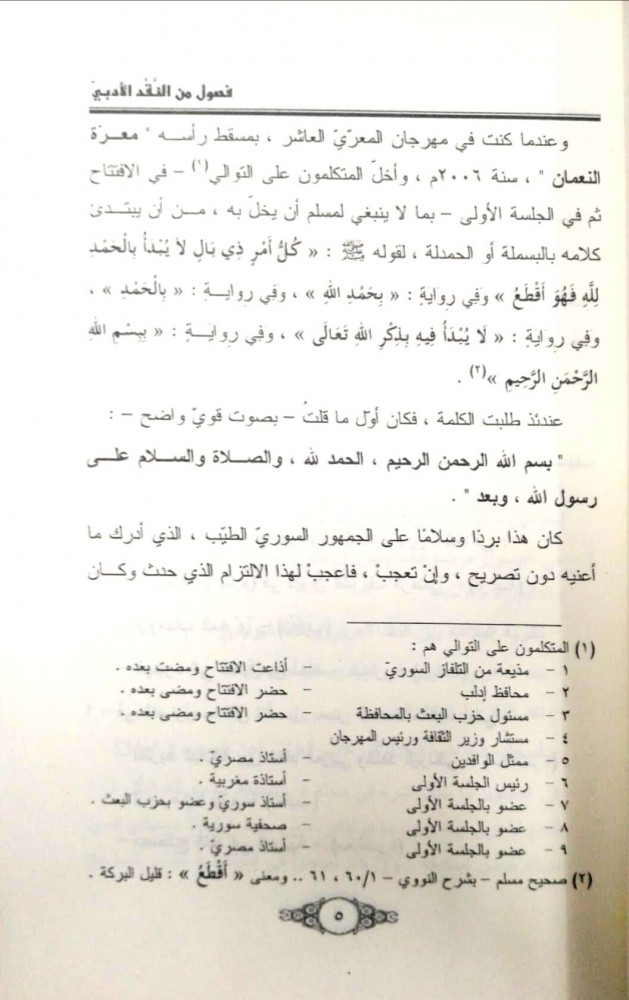 فصول من النقد الأدبيّ
وعندما كنت في مهرجان المعريّ العاشر ، بمسقط رأسه " معرّة
النعمان " ، سنة ٢٠٠٦م ، وأخلّ المتكلمون على التوالي(١) – في الافتتاح
ثم في الجلسة الأولى – بما لا ينبغي لمسلم أن يخلّ به ، من أن يبتدئ
كلامه بالبسملة أو الحمدلة ، لقوله ﷺ : « كُلُّ أَمْرٍ ذِي بَالٍ لاَ يُبْدَأُ بِالْحَمْدِ
لِلَّهِ فَهُوَ أَقْطَعُ » وفي روايةٍ : « بِحَمْدِ اللهِ » ، وفي روايةٍ : « بِالْحَمْدِ » ،
وفي روايةٍ : « لاَ يُبْدَأُ فِيهِ بِذِكْرِ اللهِ تَعَالَى » ، وفي روايةٍ : « بِبِسْمِ اللهِ
الرَّحْمَنِ الرَّحِيمِ »(٢) .
عندئذ طلبت الكلمة ، فكان أوّل ما قلتُ – بصوت قويّ واضح – :
" بسم الله الرحمن الرحيم ، الحمد لله ، والصلاة والسلام على
رسول الله ، وبعد " .
كان هذا بردًا وسلامًا على الجمهور السوريّ الطيّب ، الذي أدرك ما
أعنيه دون تصريح ، وإنْ تعجبْ ، فاعجبْ لهذا الالتزام الذي حدث وكان
(١) المتكلمون على التوالي هم :
١ – مذيعة من التلفاز السوريّ – أذاعت الافتتاح ومضت بعده .
٢ – محافظ إدلب – حضر الافتتاح ومضى بعده .
٣ – مسئول حزب البعث بالمحافظة – حضر الافتتاح ومضى بعده .
٤ – مستشار وزير الثقافة ورئيس المهرجان
٥ – ممثل الوافدين – أستاذ مصريّ .
٦ – رئيس الجلسة الأولى – أستاذة مغربية .
٧ – عضو بالجلسة الأولى – أستاذ سوريّ وعضو بحزب البعث .
٨ – عضو بالجلسة الأولى – صحفية سورية .
٩ – عضو بالجلسة الأولى – أستاذ مصريّ .
(٢) صحيح مسلم – بشرح النووي – ٦٠/١ ، ٦١ .. ومعنى « أَقْطَعُ » : قليل البركة .
٥